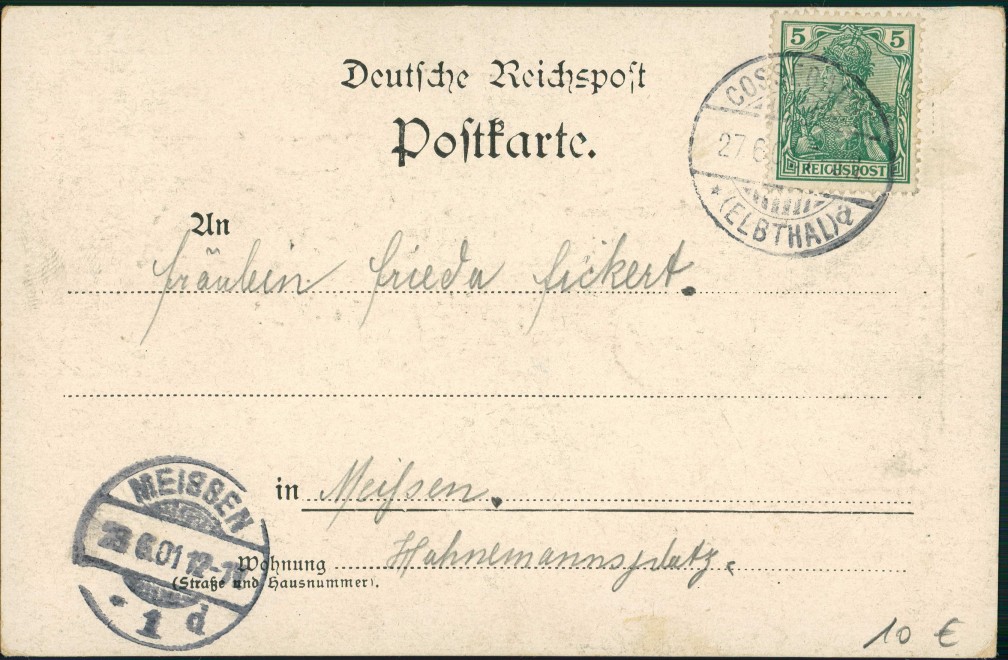 Deutsche Reichspost
Postkarte.
5 5
REICHSPOST
27 6
(ELBTHAL) a
An
Fräulein Frieda Fickert.
in Meißen.
Wohnung Hahnemannsplatz.
(Straße und Hausnummer).
MEISSEN
28 6.01 12-1
1 d
10 €